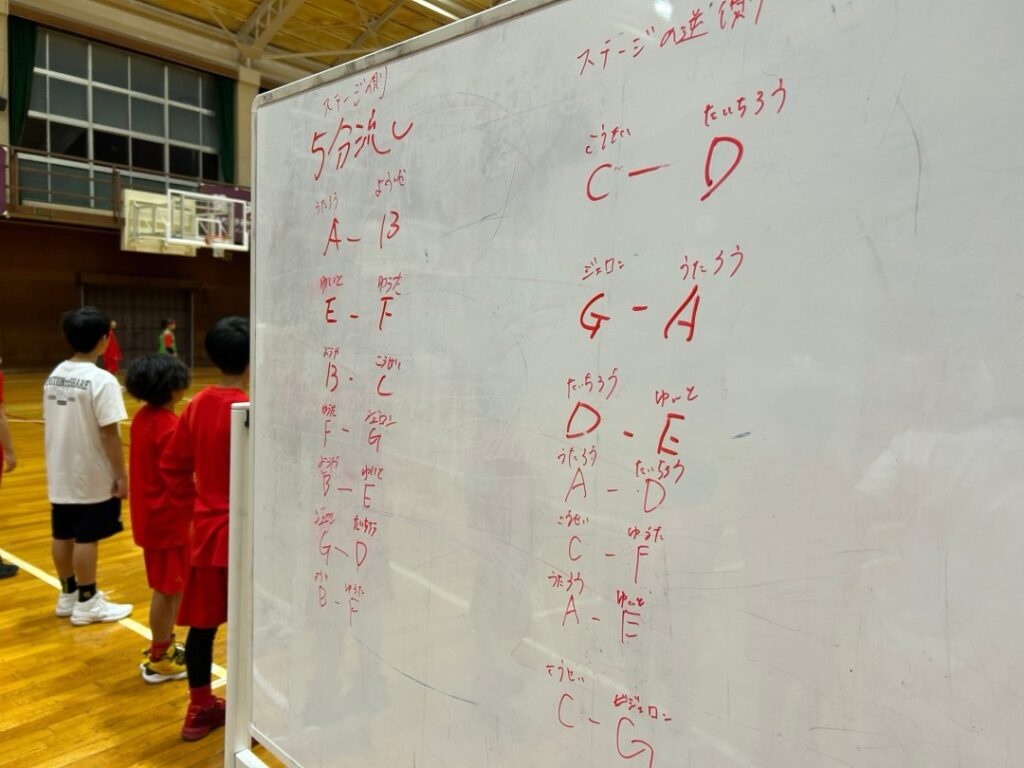 ステージ側
5分流し
うたろう ようや
A - B
ゆいと ゆうた
E - F
ようや こうせい
B - C
ゆうた ジェロン
F - G
ようや ゆいと
B - E
ジェロン たいちろう
G - D
ようや ゆうた
B - F
ステージの逆側
こうせい たいちろう
C - D
ジェロン うたろう
G - A
たいちろう ゆいと
D - E
うたろう たいちろう
A - D
こうせい ゆうた
C - F
うたろう ゆいと
A - E
こうせい ジェロン
C - G